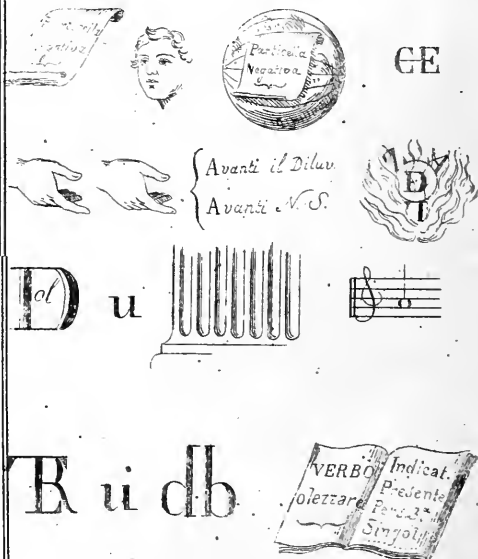 Particella
Negativa
CE
Avanti il Diluv.
Avanti N. S.
D
I
D
ol
u
TR u i db
VERBO
olezzare
Indicat.
Presente
Pers. 2ª
Singol